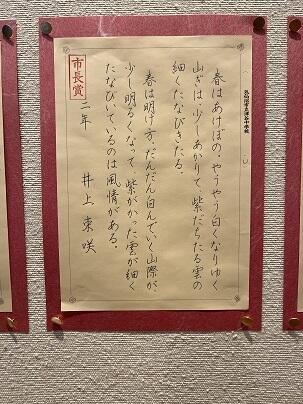 春はあけぼの。やうやう白くなりゆく
山ぎは、少しあかりて、紫だちたる雲の
細くたなびきたる。
春は明け方。だんだん白んでいく山際が、
少し明るくなって、紫がかった雲が細く
たなびいているのは風情がある。
市長賞
二年 井上 東咲